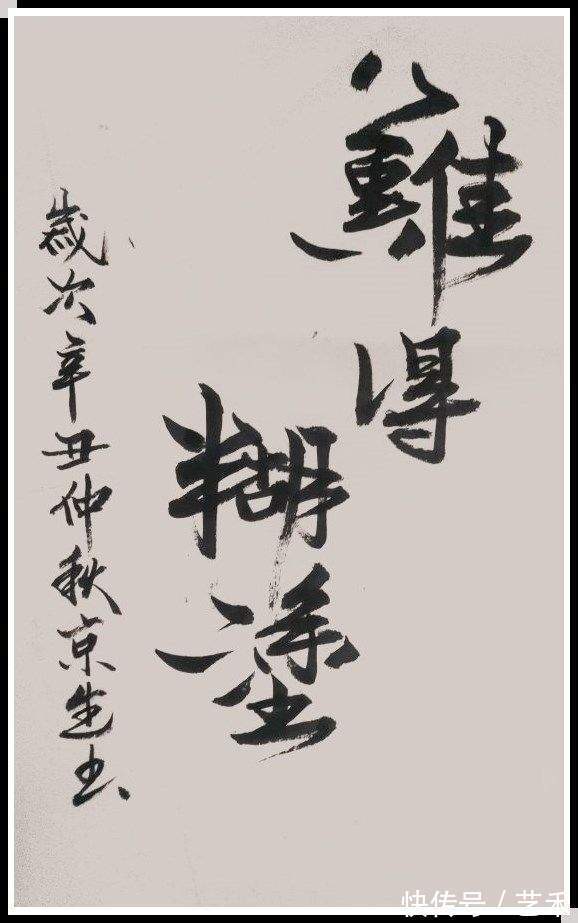 難得
糊塗
歲次辛丑仲秋京生书
快传号 / 艺和